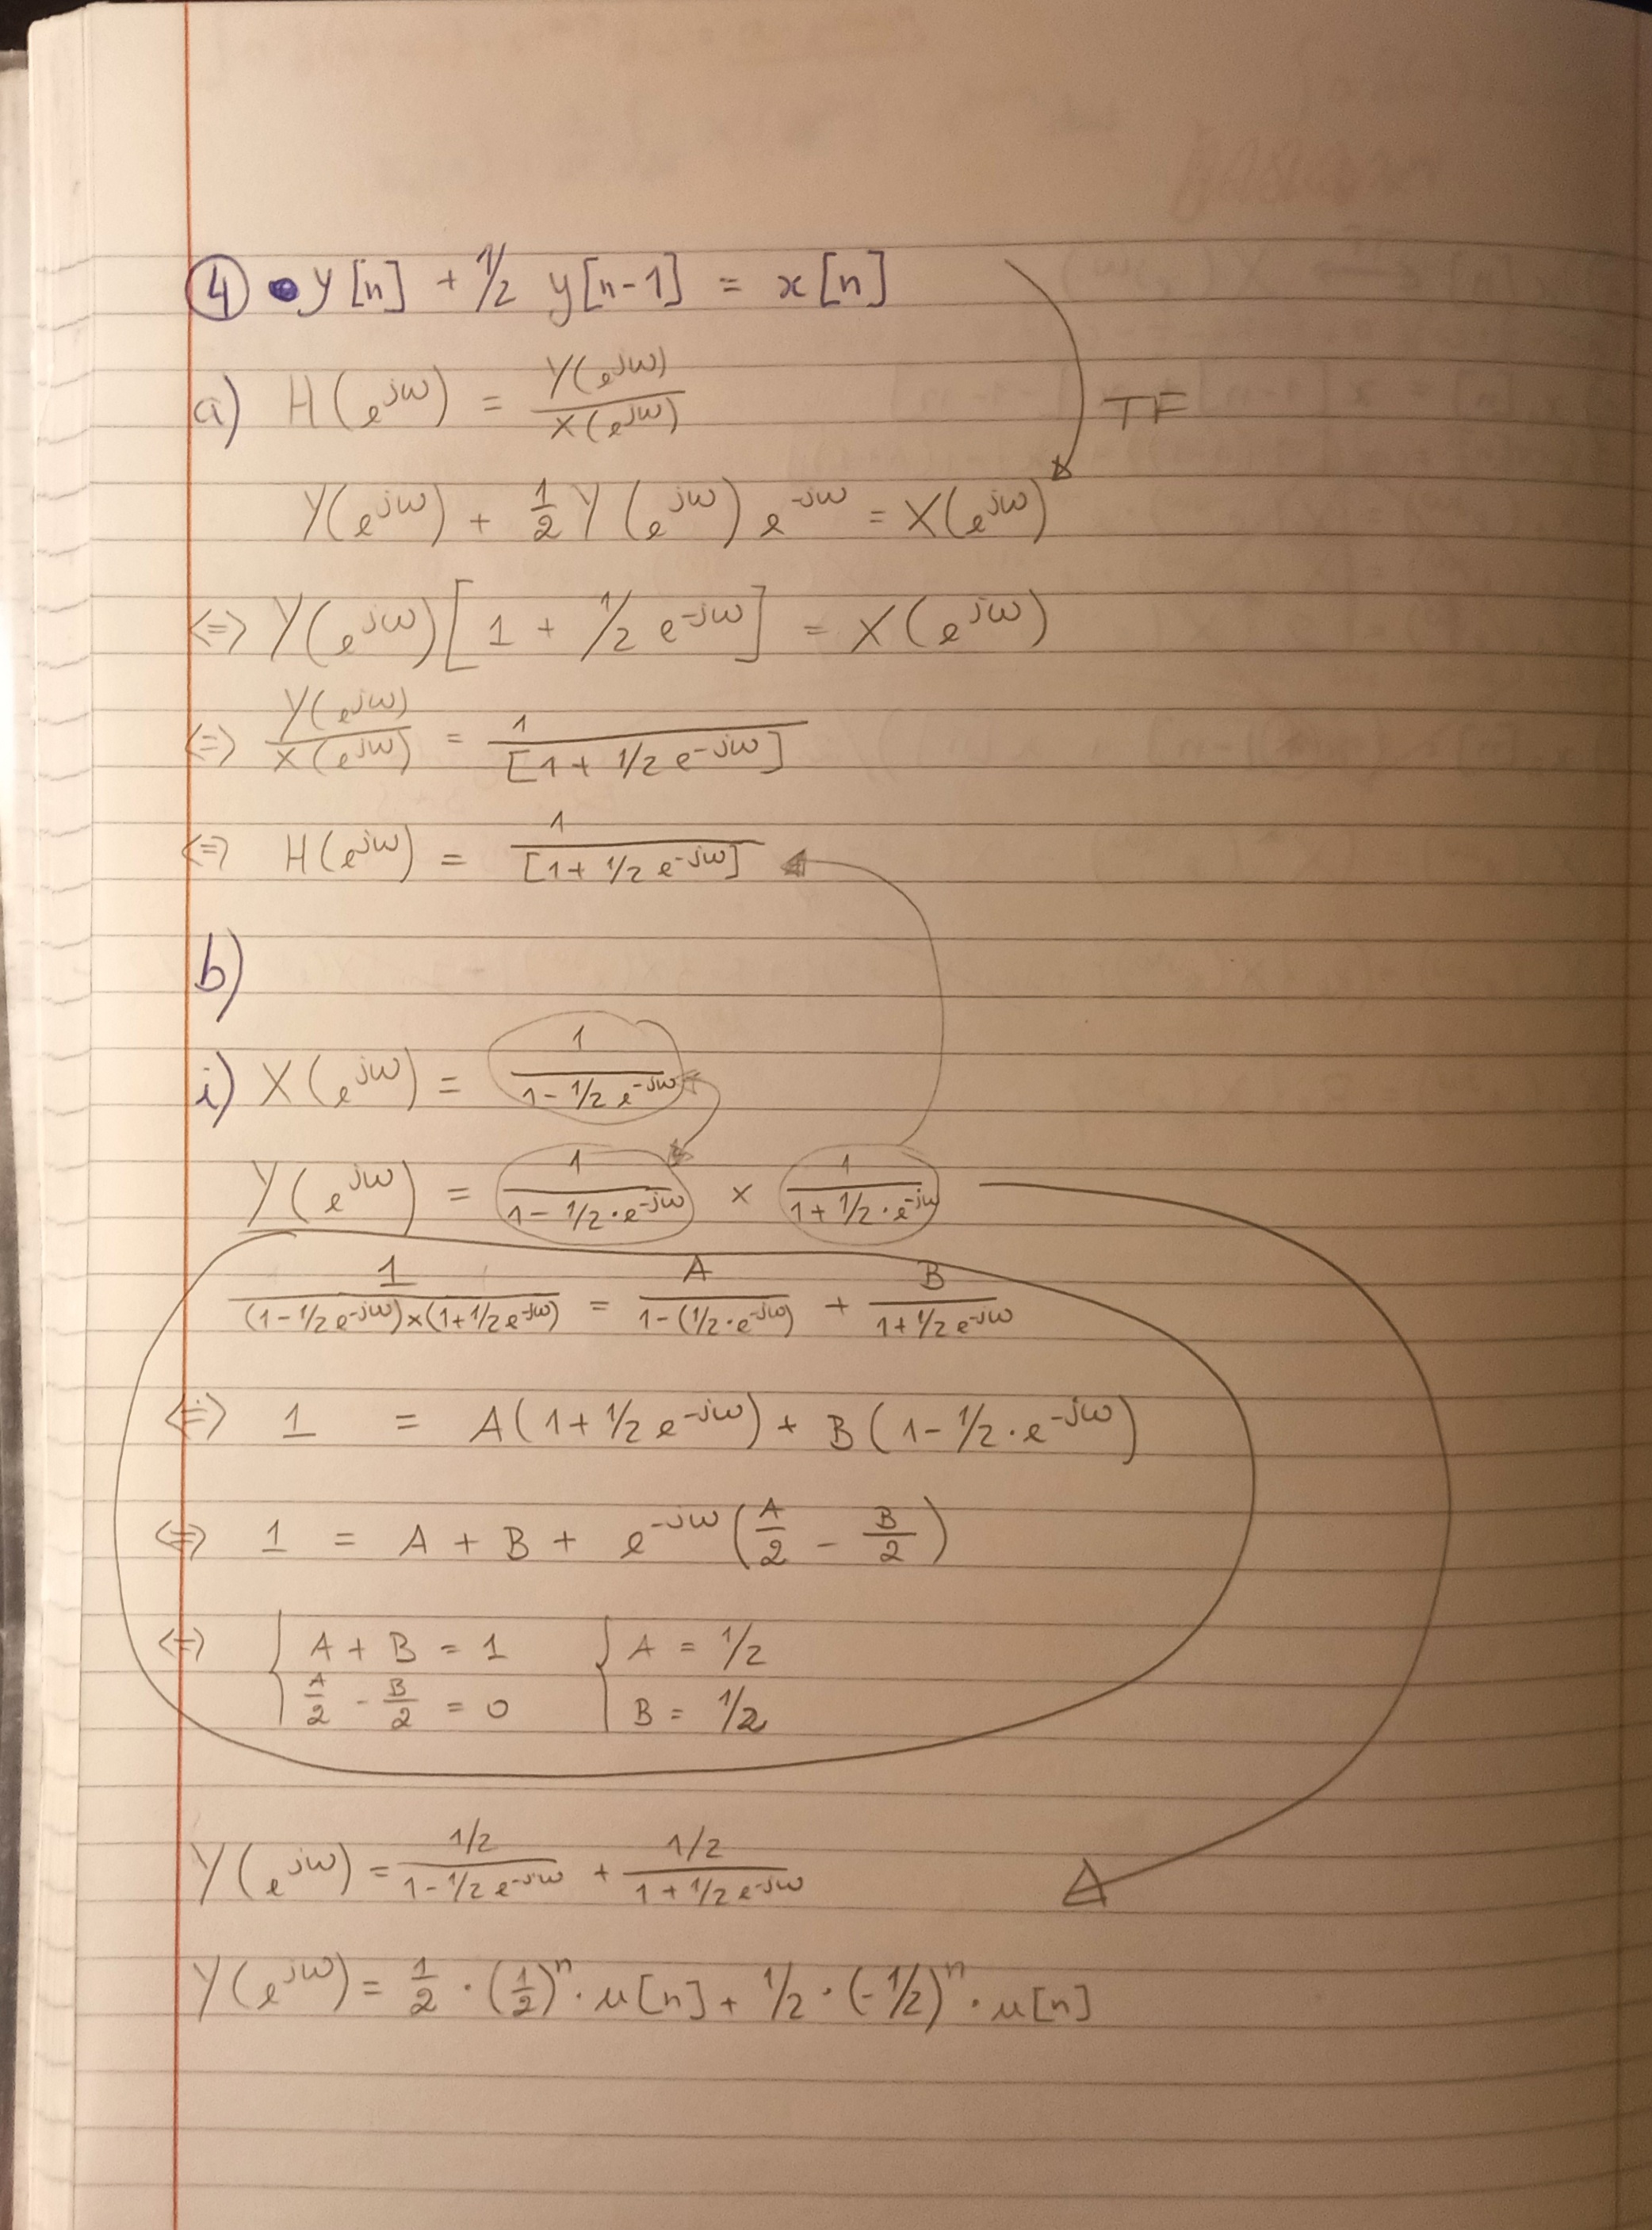 ④ y[n] + 1/2 y[n-1] = x[n]
a) H(e^jω) = Y(e^jω) / X(e^jω)
TF
Y(e^jω) + 1/2 Y(e^jω) e^-jω = X(e^jω)
<=> Y(e^jω)[1 + 1/2 e^-jω] = X(e^jω)
<=> Y(e^jω) / X(e^jω) = 1 / [1 + 1/2 e^-jω]
<=> H(e^jω) = 1 / [1 + 1/2 e^-jω]
b)
i) X(e^jω) = 1 / (1 - 1/2 e^-jω)
Y(e^jω) = 1 / (1 - 1/2 · e^-jω) × 1 / (1 + 1/2 · e^-jω)
1 / ((1 - 1/2 e^-jω) × (1 + 1/2 e^-jω)) = A / (1 - (1/2 · e^-jω)) + B / (1 + 1/2 e^-jω)
<=> 1 = A(1 + 1/2 e^-jω) + B(1 - 1/2 · e^-jω)
<=> 1 = A + B + e^-jω (A/2 - B/2)
<=> { A + B = 1 { A = 1/2
A/2 - B/2 = 0 B = 1/2
Y(e^jω) = 1/2 / (1 - 1/2 e^-jω) + 1/2 / (1 + 1/2 e^-jω)
Y(e^jω) = 1/2 · (1/2)^n · u[n] + 1/2 · (-1/2)^n · u[n]